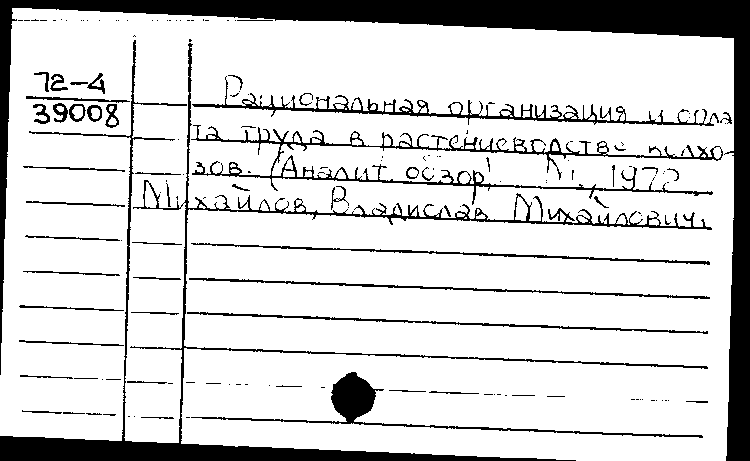 72-4
39008
Рациональная организация и опла
та труда в растениеводстве колхо-
зов. (Аналит обзор) М., 1972
Михайлов, Владислав Михайлович.